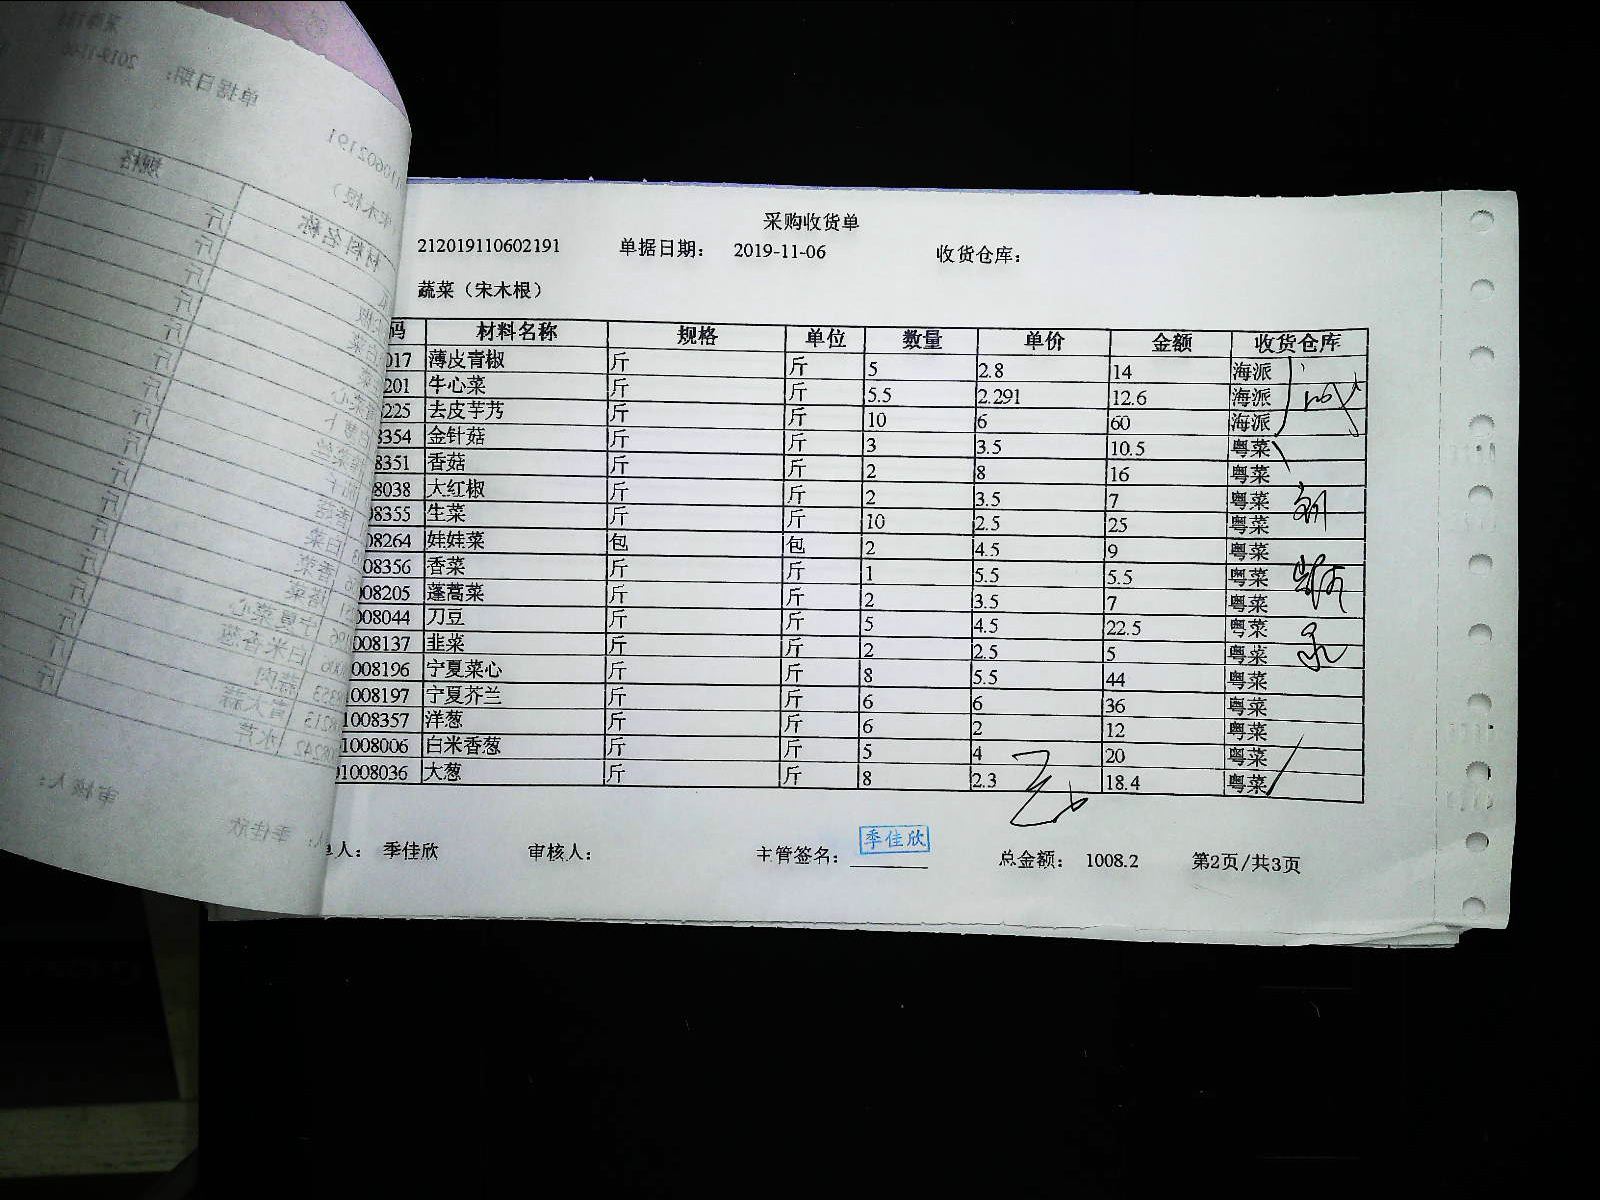 采购收货单
212019110602191 单据日期： 2019-11-06 收货仓库：
蔬菜（宋木根）
码 材料名称 规格 单位 数量 单价 金额 收货仓库
017 薄皮青椒 斤 斤 5 2.8 14 海派
201 牛心菜 斤 斤 5.5 2.291 12.6 海派
225 去皮芋艿 斤 斤 10 6 60 海派
8354 金针菇 斤 斤 3 3.5 10.5 粤菜
8351 香菇 斤 斤 2 8 16 粤菜
8038 大红椒 斤 斤 2 3.5 7 粤菜
08355 生菜 斤 斤 10 2.5 25 粤菜
08264 娃娃菜 包 包 2 4.5 9 粤菜
08356 香菜 斤 斤 1 5.5 5.5 粤菜
008205 蓬蒿菜 斤 斤 2 3.5 7 粤菜
008044 刀豆 斤 斤 5 4.5 22.5 粤菜
008137 韭菜 斤 斤 2 2.5 5 粤菜
1008196 宁夏菜心 斤 斤 8 5.5 44 粤菜
1008197 宁夏芥兰 斤 斤 6 6 36 粤菜
1008357 洋葱 斤 斤 6 2 12 粤菜
1008006 白米香葱 斤 斤 5 4 20 粤菜
01008036 大葱 斤 斤 8 2.3 18.4 粤菜
单人： 季佳欣 审核人： 主管签名： 季佳欣 总金额： 1008.2 第2页/共3页